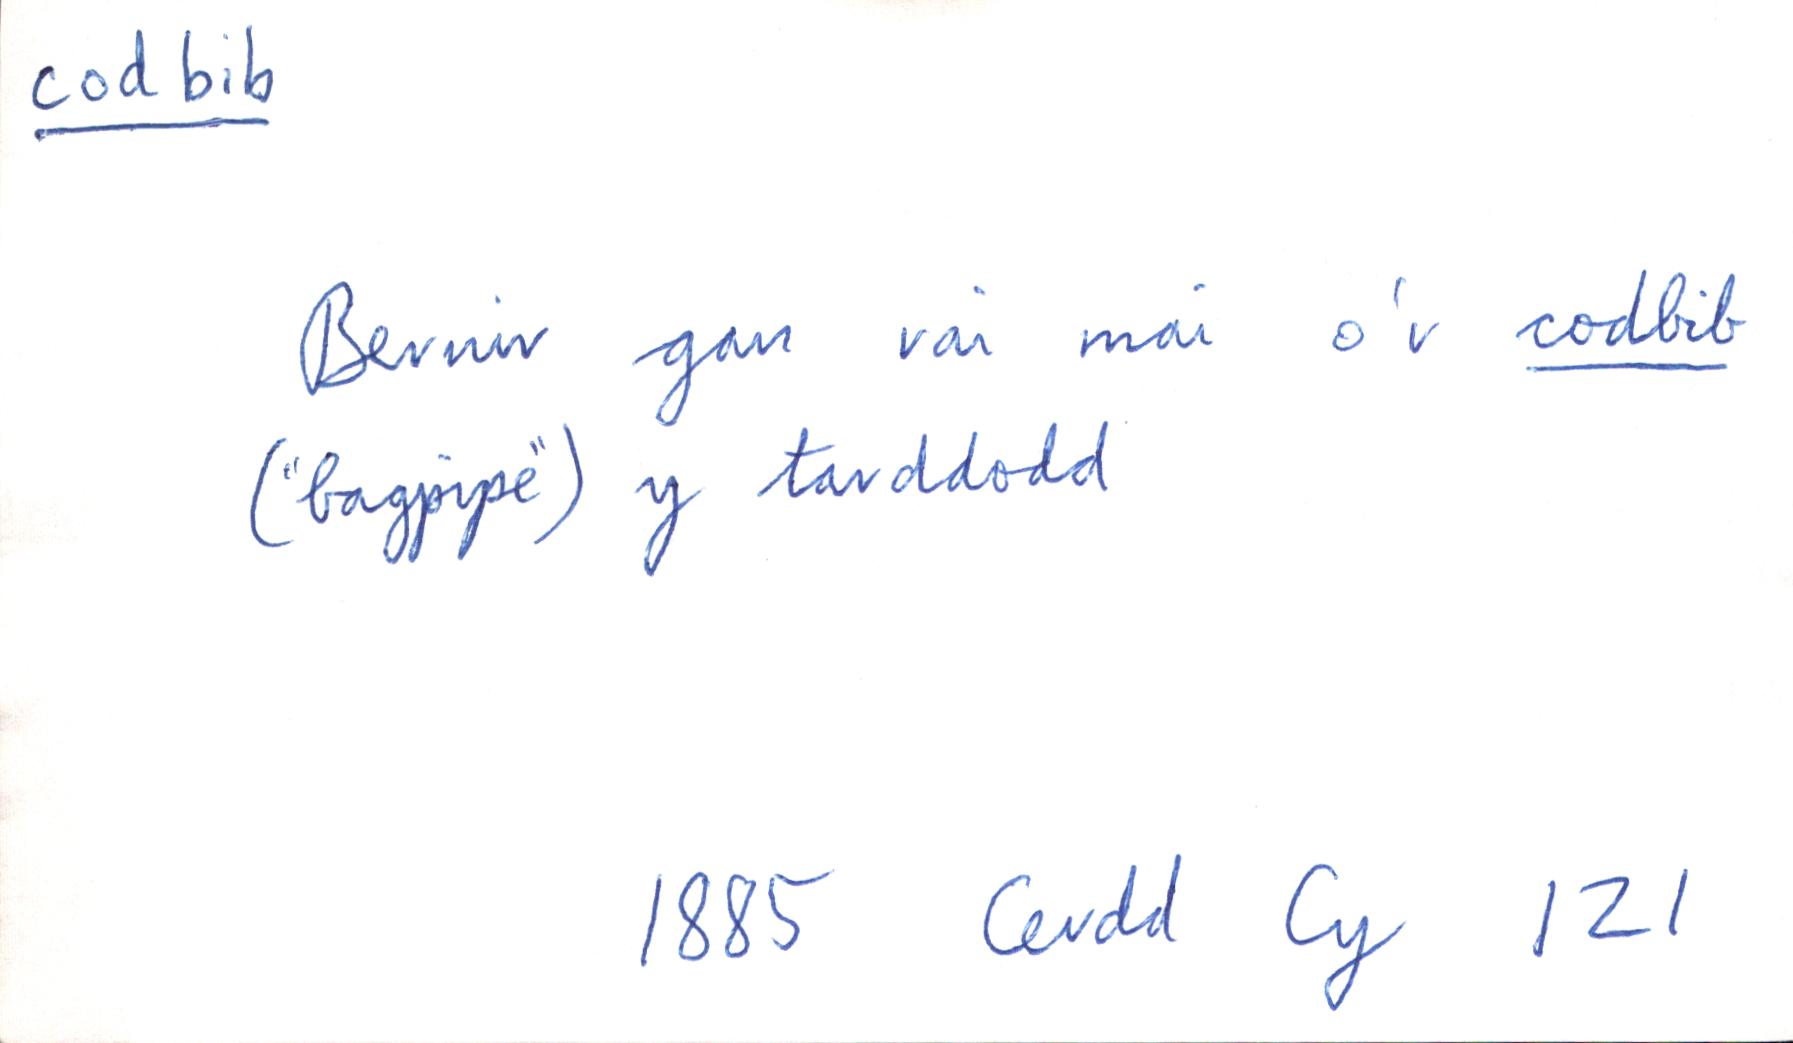 codbib
Bernir gan rai mai o'r codbib
("bagpipe") y tarddodd
1885 Cerdd Cy 121